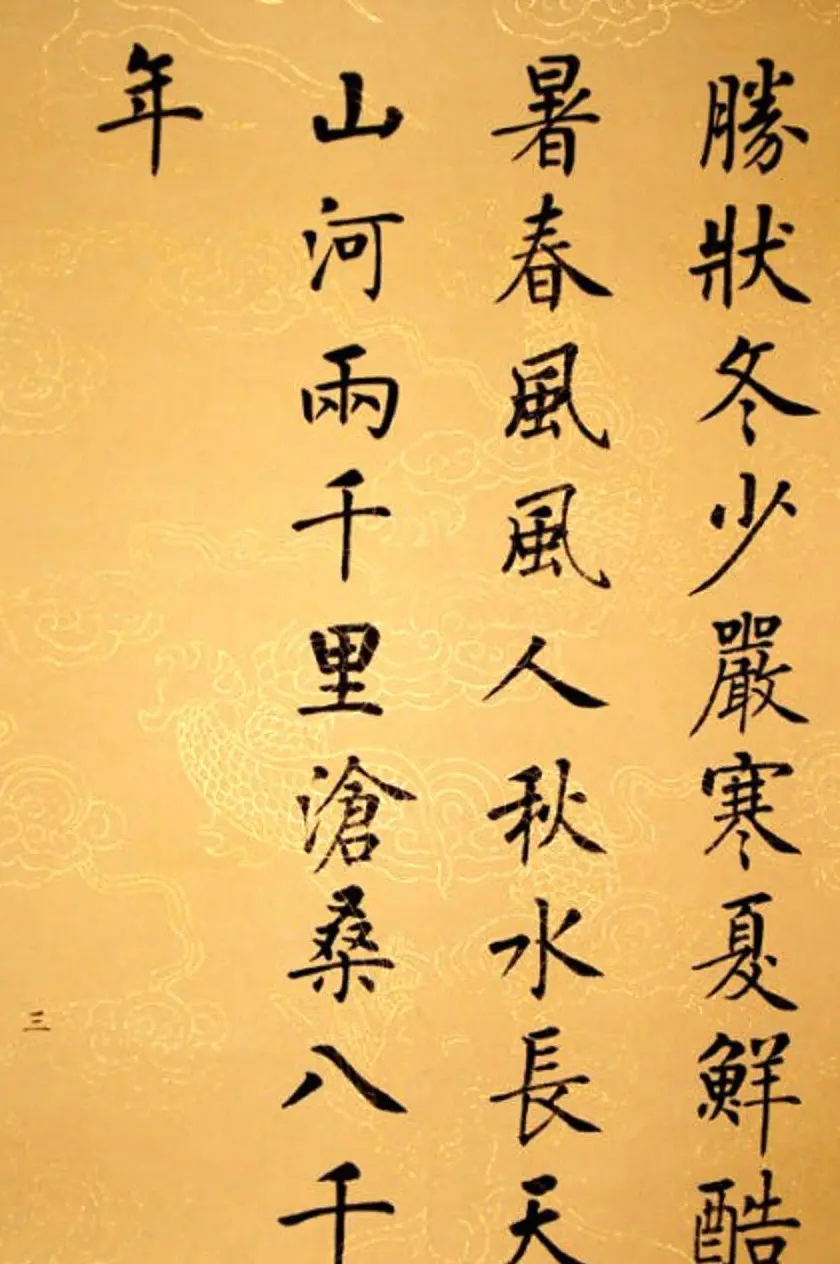 勝狀冬少嚴寒夏鮮酷
暑春風風人秋水長天
山河兩千里滄桑八千
年
三